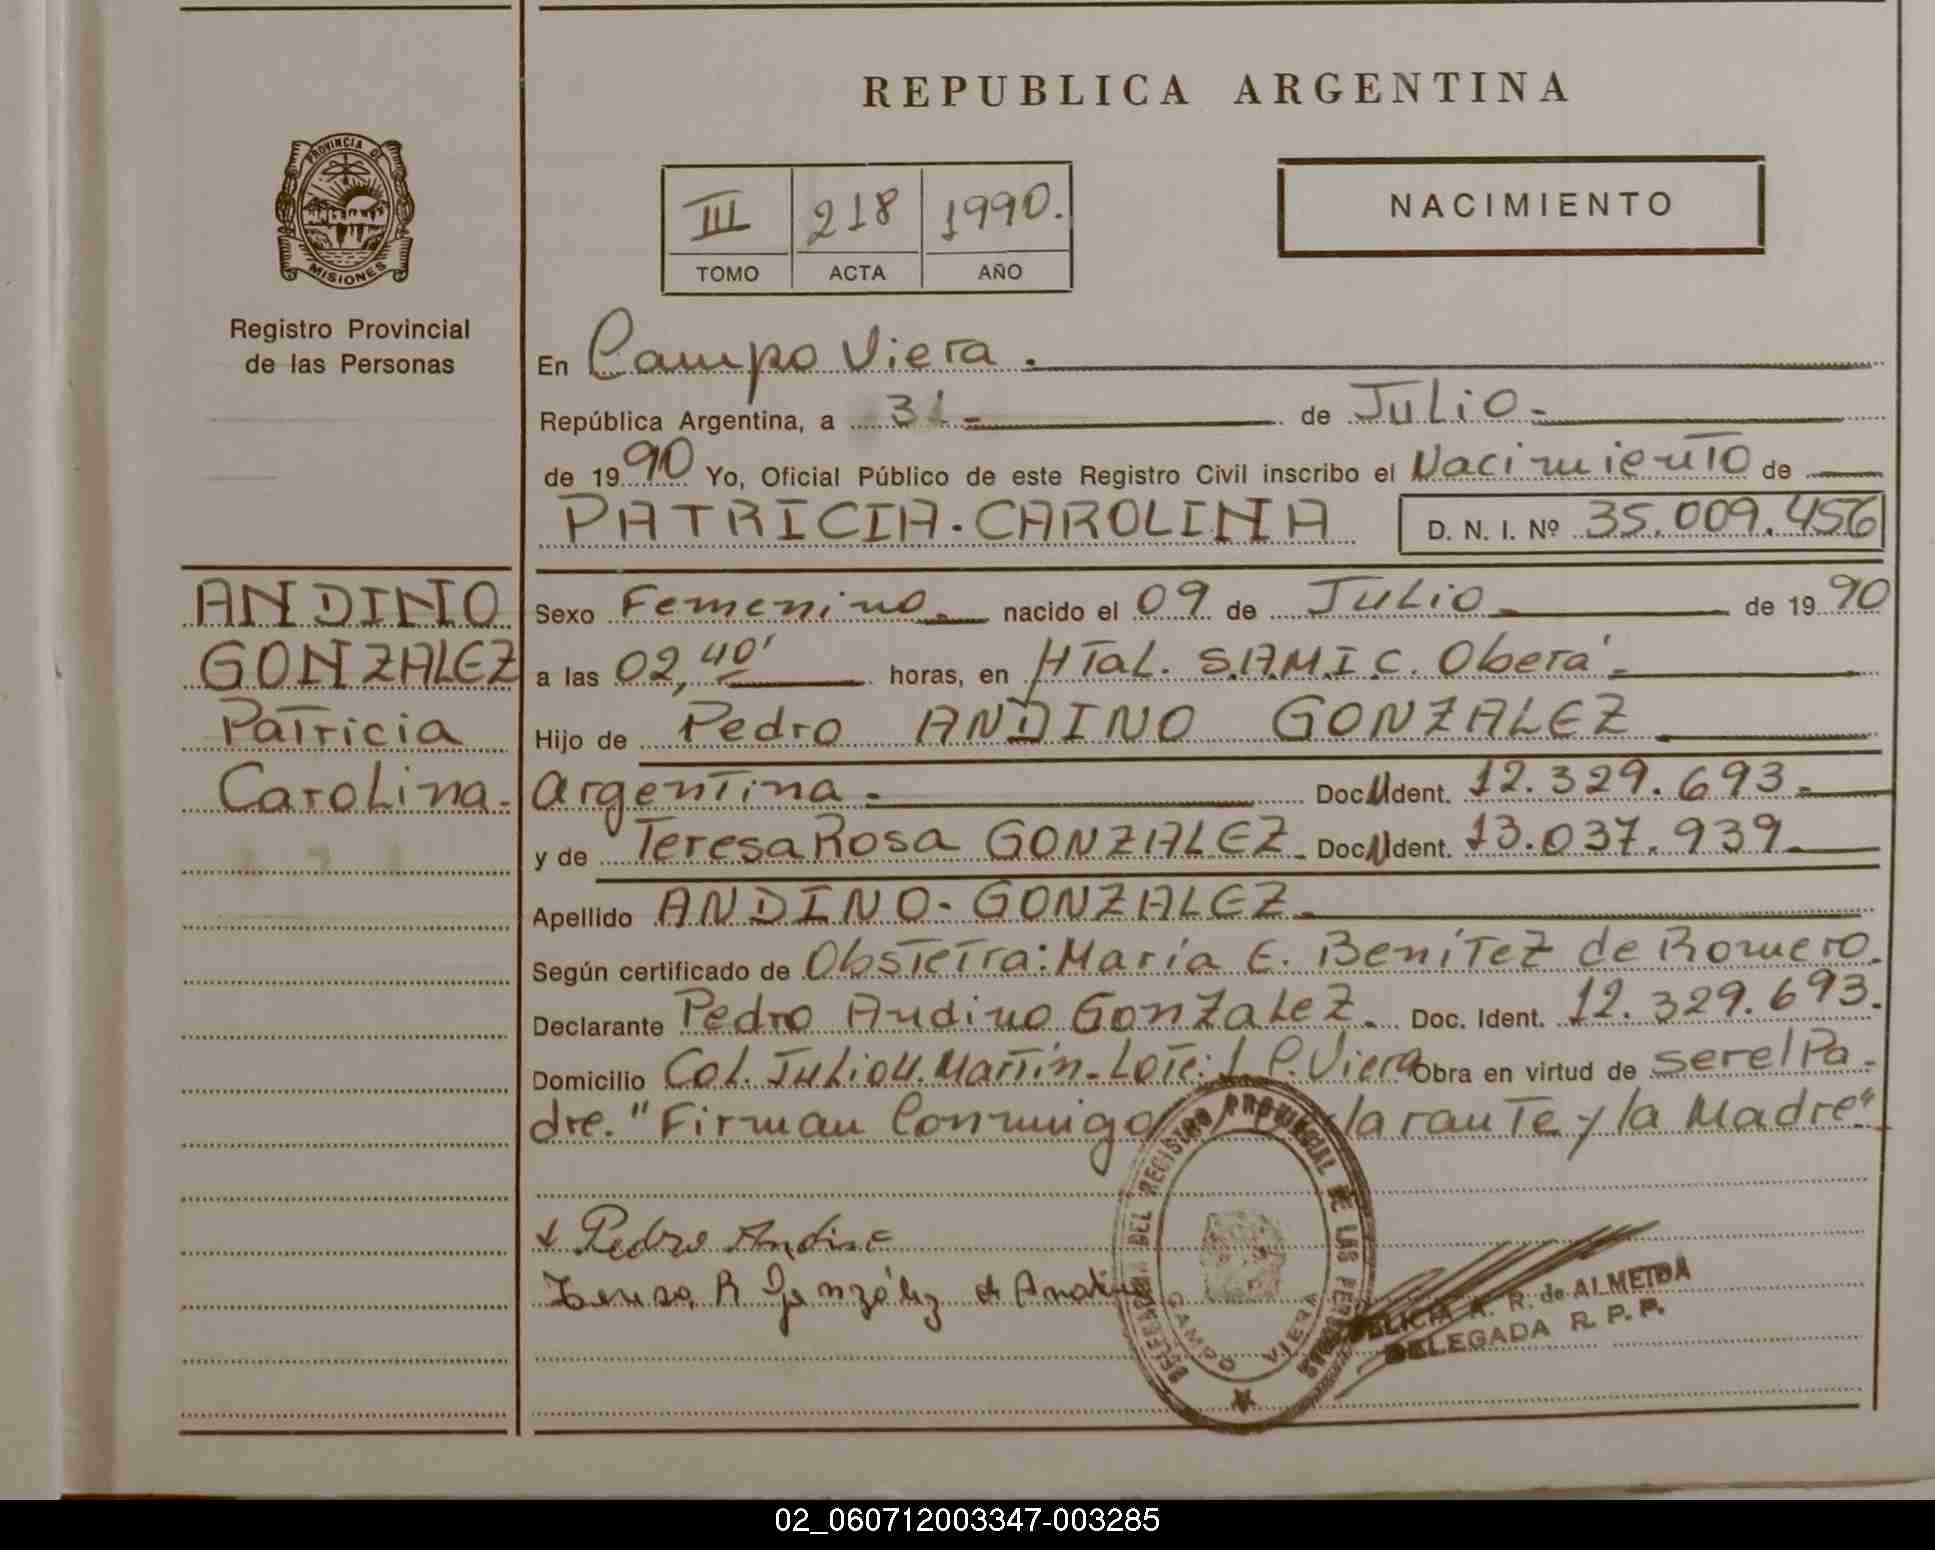 REPUBLICA ARGENTINA
PROVINCIA DE
MISIONES
Registro Provincial
de las Personas
III 218 1990.
TOMO ACTA AÑO
NACIMIENTO
En Campo Viera.
República Argentina, a 31- de Julio.-
de 1990 Yo, Oficial Público de este Registro Civil inscribo el Nacimiento de
PATRICIA. CAROLINA D. N. I. Nº 35.009.456
ANDINO
GONZALEZ
Patricia
Carolina.-
Sexo Femenino.- nacido el 09 de Julio.- de 1990
a las 02,40' horas, en HTal. S.A.M.I.C. Oberá.-
Hijo de Pedro ANDINO GONZALEZ.
Argentina.- Doc. Ident. 12.329.693.-
y de Teresa Rosa GONZALEZ. Doc. Ident. 13.037.939.
Apellido ANDINO- GONZALEZ.
Según certificado de Obstetra: María E. Benítez de Romero.
Declarante Pedro Andino Gonzalez. Doc. Ident. 12.329.693.
Domicilio Col. Julio U. Martín- Lote: P. Viera Obra en virtud de ser el Pa-
dre. "Firman Conmigo larante y la Madre".
Pedro Andino
Teresa R González de Andino
DELEGACION DEL REGISTRO PROVINCIAL DE LAS PERSONAS
CAMPO VIERA
R. de ALMEIDA
DELEGADA R. P. P.
02_060712003347-003285